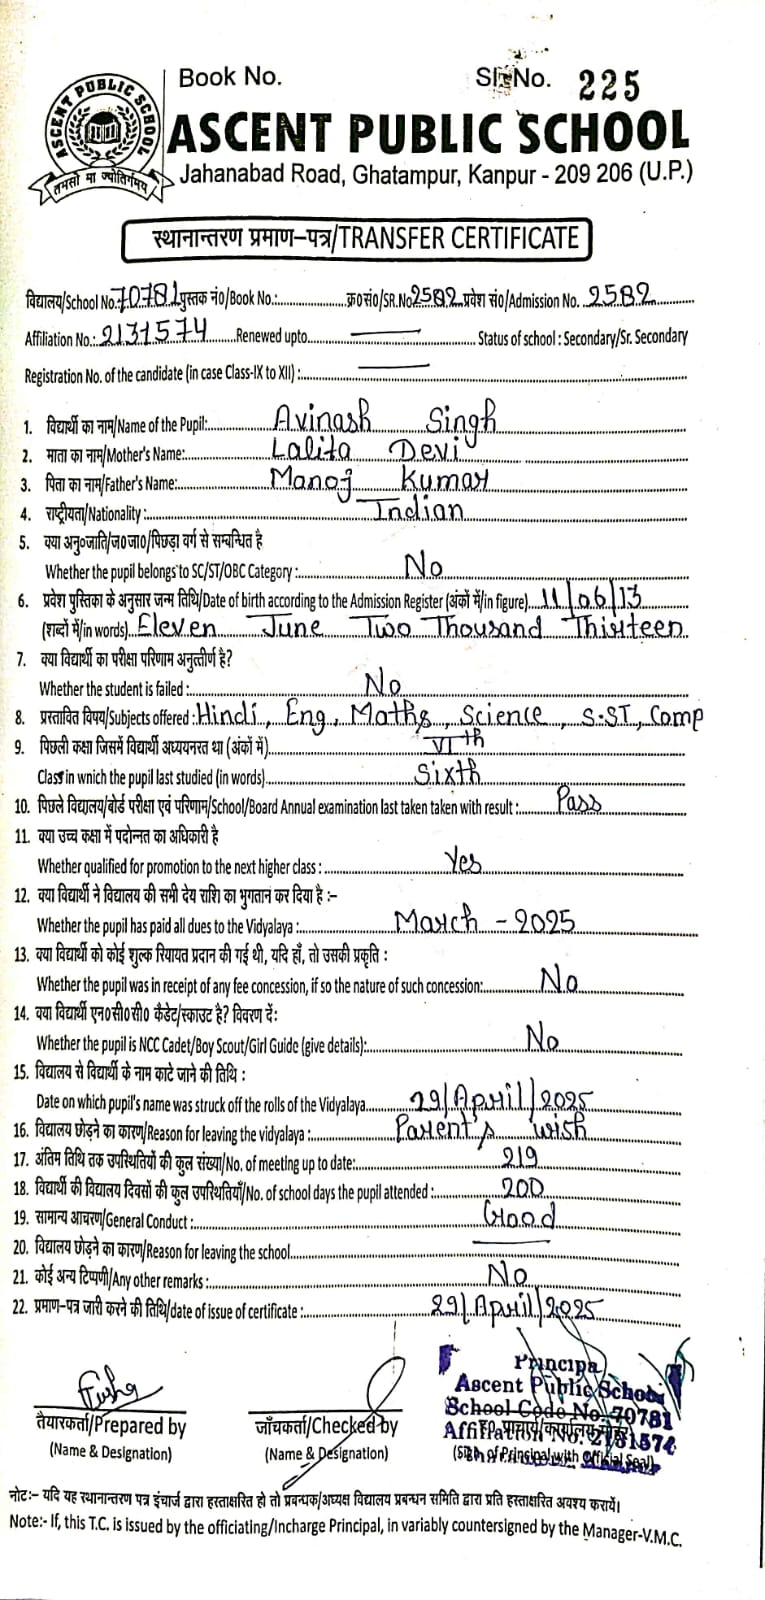 Book No. Sl. No. 225
ASCENT PUBLIC SCHOOL
तमसो मा ज्योतिर्गमय
ASCENT PUBLIC SCHOOL
Jahanabad Road, Ghatampur, Kanpur - 209 206 (U.P.)
स्थानान्तरण प्रमाण-पत्र/TRANSFER CERTIFICATE
विद्यालय/School No. 70781 पुस्तक नं०/Book No.: क्र०सं०/SR.No 2582 प्रवेश सं०/Admission No. 2582
Affiliation No.: 2131574 Renewed upto Status of school : Secondary/Sr. Secondary
Registration No. of the candidate (in case Class-IX to XII) :
1. विद्यार्थी का नाम/Name of the Pupil: Avinash Singh
2. माता का नाम/Mother's Name: Lalita Devi
3. पिता का नाम/Father's Name: Manoj Kumar
4. राष्ट्रीयता/Nationality : Indian
5. क्या अनु०जाति/ज०जा०/पिछड़ा वर्ग से सम्बन्धित है
Whether the pupil belongs to SC/ST/OBC Category : No
6. प्रवेश पुस्तिका के अनुसार जन्म तिथि/Date of birth according to the Admission Register (अंकों में/in figure) 11/06/13
(शब्दों में/in words) Eleven June Two Thousand Thirteen
7. क्या विद्यार्थी का परीक्षा परिणाम अनुत्तीर्ण है?
Whether the student is failed : No
8. प्रस्तावित विषय/Subjects offered : Hindi, Eng, Maths, Science, S.ST, Comp
9. पिछली कक्षा जिसमें विद्यार्थी अध्ययनरत था (अंकों में) VIth
Class in wnich the pupil last studied (in words) Sixth
10. पिछले विद्यालय/बोर्ड परीक्षा एवं परिणाम/School/Board Annual examination last taken taken with result : Pass
11. क्या उच्च कक्षा में पदोन्नत का अधिकारी है
Whether qualified for promotion to the next higher class : Yes
12. क्या विद्यार्थी ने विद्यालय की सभी देय राशि का भुगतान कर दिया है :-
Whether the pupil has paid all dues to the Vidyalaya : March - 2025
13. क्या विद्यार्थी को कोई शुल्क रियायत प्रदान की गई थी, यदि हाँ, तो उसकी प्रकृति :
Whether the pupil was in receipt of any fee concession, if so the nature of such concession: No
14. क्या विद्यार्थी एन०सी०सी० कैडेट/स्काउट है? विवरण दें:
Whether the pupil is NCC Cadet/Boy Scout/Girl Guide (give details): No
15. विद्यालय से विद्यार्थी के नाम काटे जाने की तिथि :
Date on which pupil's name was struck off the rolls of the Vidyalaya 29/April/2025
16. विद्यालय छोड़ने का कारण/Reason for leaving the vidyalaya : Parent's wish
17. अंतिम तिथि तक उपस्थितियों की कुल संख्या/No. of meeting up to date: 219
18. विद्यार्थी की विद्यालय दिवसों की कुल उपस्थितियाँ/No. of school days the pupil attended : 200
19. सामान्य आचरण/General Conduct : Good
20. विद्यालय छोड़ने का कारण/Reason for leaving the school
21. कोई अन्य टिप्पणी/Any other remarks : No
22. प्रमाण-पत्र जारी करने की तिथि/date of issue of certificate : 29/April/2025
Principa
Ascent Public School
School Code No. 70781
Affiliation No. 2131574
तैयारकर्ता/Prepared by जाँचकर्ता/Checked by
(Name & Designation) (Name & Designation) (Sign. of Principal with Official Seal)
नोट:- यदि यह स्थानान्तरण पत्र इंचार्ज द्वारा हस्ताक्षरित हो तो प्रबन्धक/अध्यक्ष विद्यालय प्रबन्धन समिति द्वारा प्रति हस्ताक्षरित अवश्य करायें।
Note:- If, this T.C. is issued by the officiating/Incharge Principal, in variably countersigned by the Manager-V.M.C.